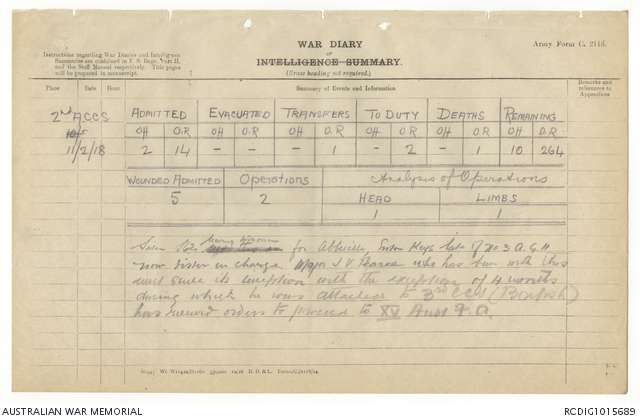 WAR DIARY
OF
INTELLIGENCE SUMMARY.
(Erase heading not required.)
Army Form C. 2118.
Instructions regarding War Diaries and Intelligence
Summaries are contained in F. S. Regs., Part II.
and the Staff Manual respectively. Title pages
will be prepared in manuscript.
Place Date Hour Summary of Events and Information Remarks and references to Appendices
2nd ACCS
11/2/18
ADMITTED EVACUATED TRANSFERS TO DUTY DEATHS REMAINING
Off O.R Off O.R Off O.R Off O.R Off O.R Off O.R
2 14 – – – 1 – 2 – 1 10 264
WOUNDED ADMITTED OPERATIONS Analysis of Operations
5 2 HEAD LIMBS
1 1
for Abbeville, Sister late of No 3 A.G.H
now Sister in charge. Major J V who has been with this
unit since its inception with the exception of 4 months
during which he was attached to 3rd CCS (British)
has received orders to proceed to XV F.A.
AUSTRALIAN WAR MEMORIAL
RCDIG1015689